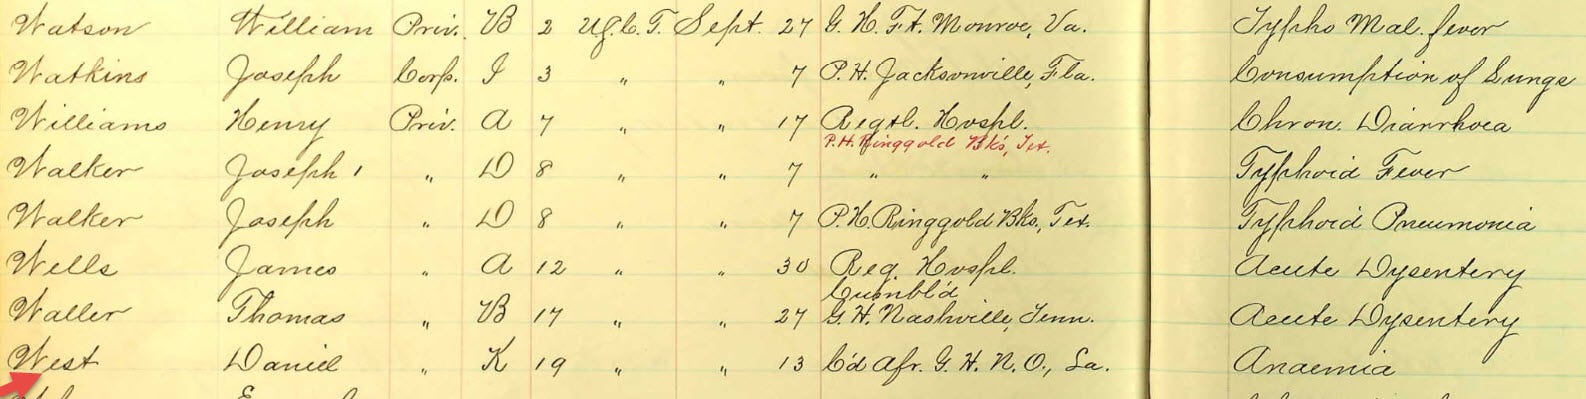 Watson William Priv. B 2 U.S.C.T. Sept. 27 G. H. Ft. Monroe, Va. Typho Mal. fever
Watkins Joseph Corp. I 3 " " 7 P. H. Jacksonville, Fla. Consumption of Lungs
Williams Henry Priv. A 7 " " 17 Regtl. Hospl. Chron. Diarrhoea
P. H. Ringgold Bk's, Tex.
Walker Joseph 1 " D 8 " " 7 " " Typhoid Fever
Walker Joseph " D 8 " " 7 P. H. Ringgold Bks., Tex. Typhoid Pneumonia
Wells James " A 12 " " 30 Reg. Hospl. Acute Dysentery
Cumbl'd
Waller Thomas " B 17 " " 27 G. H. Nashville, Tenn. Acute Dysentery
West Daniel " K 19 " " 13 C'd Afr. G. H. N. O., La. Anaemia